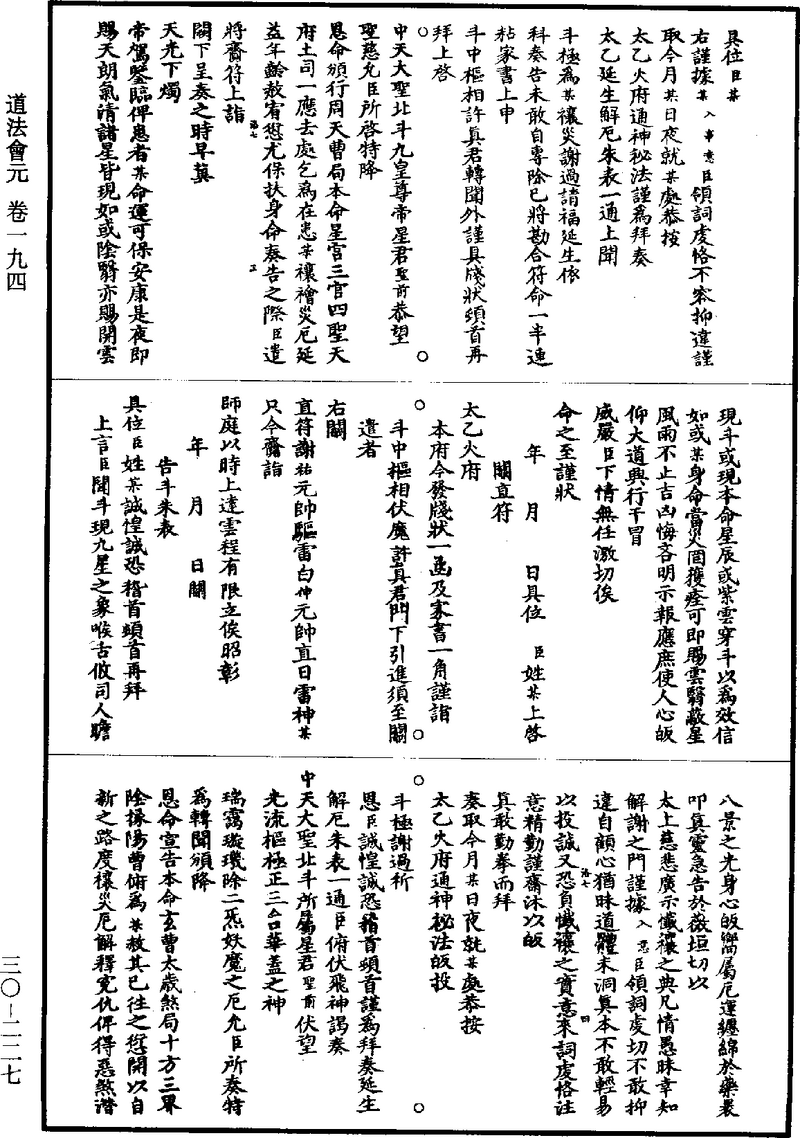 道法會元 卷一九四
具位臣某
右謹據某入事意臣領詞虔恪不容抑違謹
取今月某日夜就某處恭按
太乙火府通神秘法謹為拜奏
太乙延生解厄朱表一通上聞
斗極為某禳災謝過請福延生依
科奏告未敢自專除已將勘合符命一半連
粘家書上申
斗中樞相許真君轉聞外謹具牋狀頓首再
拜上啓
中天大聖北斗九皇尊帝星君聖前恭望
聖慈允臣所啓特降
恩命頒行周天曹局本命星宮三官四聖天
府土司一應去處乞為在患某禳禬災厄延
益年齡赦宥愆尤保扶身命奏告之際臣遣
將齎符上詣
闕下呈奏之時早冀
天光下燭
帝駕鑒臨俾患者某命運可保安康是夜即
賜天朗氣清諸星皆現如或陰翳亦賜開雲
現斗或現本命星辰或紫雲穿斗以為效信
如或某身命當災罔獲痊可即賜雲翳蔽星
風雨不止吉凶悔吝明示報應庶使人心皈
仰大道興行干冒
威嚴臣下情無任激切俟
命之至謹狀
年 月 日具位 臣姓某上啓
關直符
太乙火府
本府今發牋狀一函及家書一角謹詣
斗中樞相伏魔許真君門下引進須至關
遣者
右關
直符謝祐元帥驅雷白忡元帥直日雷神某
只今齎詣
師庭以時上達雲程有限立俟昭彰
年 月 日關
告斗朱表
具位臣姓某誠惶誠恐稽首頓首再拜
上言臣聞斗現九星之象喉舌攸司人瞻
八景之光身心皈嚮屬厄運纏綿於藥裹
叩真靈急告於薇垣切以
太上慈悲廣示懺禳之典凡情愚昧幸知
解謝之門謹據入意臣領詞虔切不敢抑
違自顧心猶昧道體未洞真本不敢輕易
以投誠又恐負懺禳之實意來詞虔恪注
意精勤謹齋沐以皈
真敢勤拳而拜
奏取今月某日夜就某處恭按
太乙火府通神秘法皈投
斗極謝過祈
恩臣誠惶誠恐稽首頓首謹為拜奏延生
解厄朱表一通臣俯伏飛神謁奏
中天大聖北斗所屬星君聖前伏望
光流樞極正三台華蓋之神
瑞靄璇璣除二炁妖魔之厄允臣所奏特
為轉聞頒降
恩命宣告本命玄曹太歲煞局十方三界
陰掾陽曹俯為某赦其已往之愆開以自
新之路度禳災厄解釋冤仇俾得惡煞潛
三〇－二二七